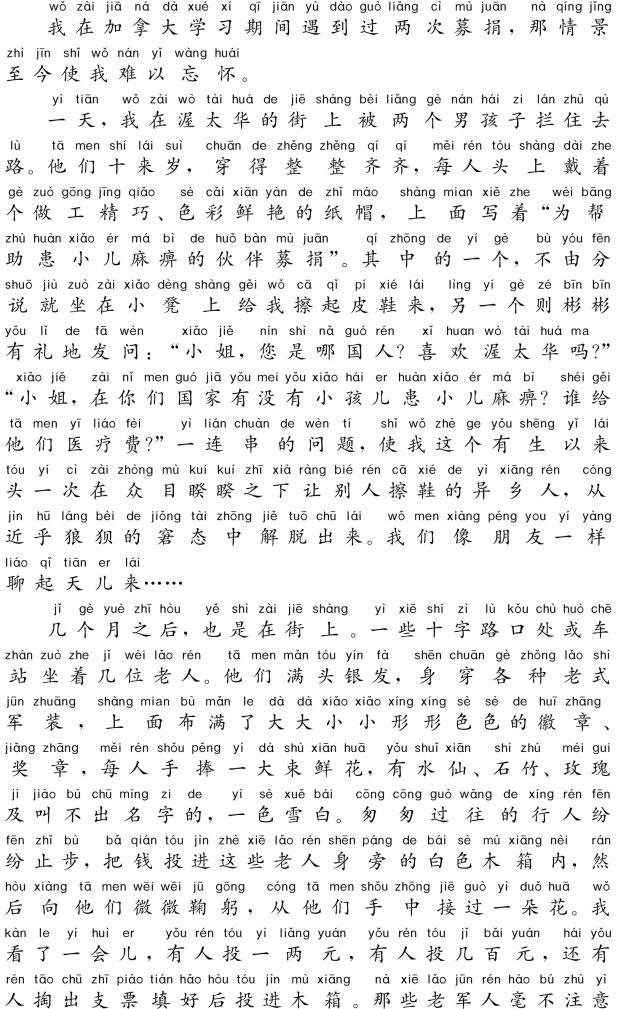 wǒ zài jiā ná dà xué xí qī jiān yù dào guò liǎng cì mù juān nà qíng jǐng
我在加拿大学习期间遇到过两次募捐，那情景
zhì jīn shǐ wǒ nán yǐ wàng huái
至今使我难以忘怀。
yì tiān wǒ zài wò tài huá de jiē shàng bèi liǎng gè nán hái zi lán zhù qù
一天，我在渥太华的街上被两个男孩子拦住去
lù tā men shí lái suì chuān de zhěng zhěng qí qí měi rén tóu shàng dài zhe
路。他们十来岁，穿得整整齐齐，每人头上戴着
gè zuò gōng jīng qiǎo sè cǎi xiān yàn de zhǐ mào shàng mian xiě zhe wèi bāng
个做工精巧、色彩鲜艳的纸帽，上面写着“为帮
zhù huàn xiǎo ér má bì de huǒ bàn mù juān qí zhōng de yí gè bù yóu fēn
助患小儿麻痹的伙伴募捐”。其中的一个，不由分
shuō jiù zuò zài xiǎo dèng shàng gěi wǒ cā qǐ pí xié lái lìng yí gè zé bīn bīn
说就坐在小凳上给我擦起皮鞋来，另一个则彬彬
yǒu lǐ de fā wèn xiǎo jiě nín shì nǎ guó rén xǐ huan wò tài huá ma
有礼地发问：“小姐，您是哪国人？喜欢渥太华吗？”
xiǎo jiě zài nǐ men guó jiā yǒu mei yǒu xiǎo hái er huàn xiǎo ér má bì shéi gěi
“小姐，在你们国家有没有小孩儿患小儿麻痹？谁给
tā men yī liáo fèi yì lián chuàn de wèn tí shǐ wǒ zhè ge yǒu shēng yǐ lái
他们医疗费？”一连串的问题，使我这个有生以来
tóu yí cì zài zhòng mù kuí kuí zhī xià ràng bié rén cā xié de yì xiāng rén cóng
头一次在众目睽睽之下让别人擦鞋的异乡人，从
jìn hū láng bèi de jiǒng tài zhōng jiě tuō chū lái wǒ men xiàng péng you yí yàng
近乎狼狈的窘态中解脱出来。我们像朋友一样
liáo qǐ tiān er lái
聊起天儿来……
jǐ gè yuè zhī hòu yě shì zài jiē shàng yì xiē shí zì lù kǒu chù huò chē
几个月之后，也是在街上。一些十字路口处或车
zhàn zuò zhe jǐ wèi lǎo rén tā men mǎn tóu yín fà shēn chuān gè zhǒng lǎo shì
站坐着几位老人。他们满头银发，身穿各种老式
jūn zhuāng shàng mian bù mǎn le dà dà xiǎo xiǎo xíng xíng sè sè de huī zhāng
军装，上面布满了大大小小形形色色的徽章、
jiǎng zhāng měi rén shǒu pěng yí dà shù xiān huā yǒu shuǐ xiān shí zhú méi gui
奖章，每人手捧一大束鲜花，有水仙、石竹、玫瑰
jí jiào bù chū míng zi de yí sè xuě bái cōng cōng guò wǎng de xíng rén fēn
及叫不出名字的，一色雪白。匆匆过往的行人纷
fēn zhǐ bù bǎ qián tóu jìn zhè xiē lǎo rén shēn páng de bái sè mù xiāng nèi rán
纷止步，把钱投进这些老人身旁的白色木箱内，然
hòu xiàng tā men wēi wēi jū gōng cóng tā men shǒu zhōng jiē guò yì duǒ huā wǒ
后向他们微微鞠躬，从他们手中接过一朵花。我
kàn le yí huì er yǒu rén tóu yì liǎng yuán yǒu rén tóu jǐ bǎi yuán hái yǒu
看了一会儿，有人投一两元，有人投几百元，还有
rén tāo chū zhī piào tián hǎo hòu tóu jìn mù xiāng nà xiē lǎo jūn rén háo bú zhù yì
人掏出支票填好后投进木箱。那些老军人毫不注意